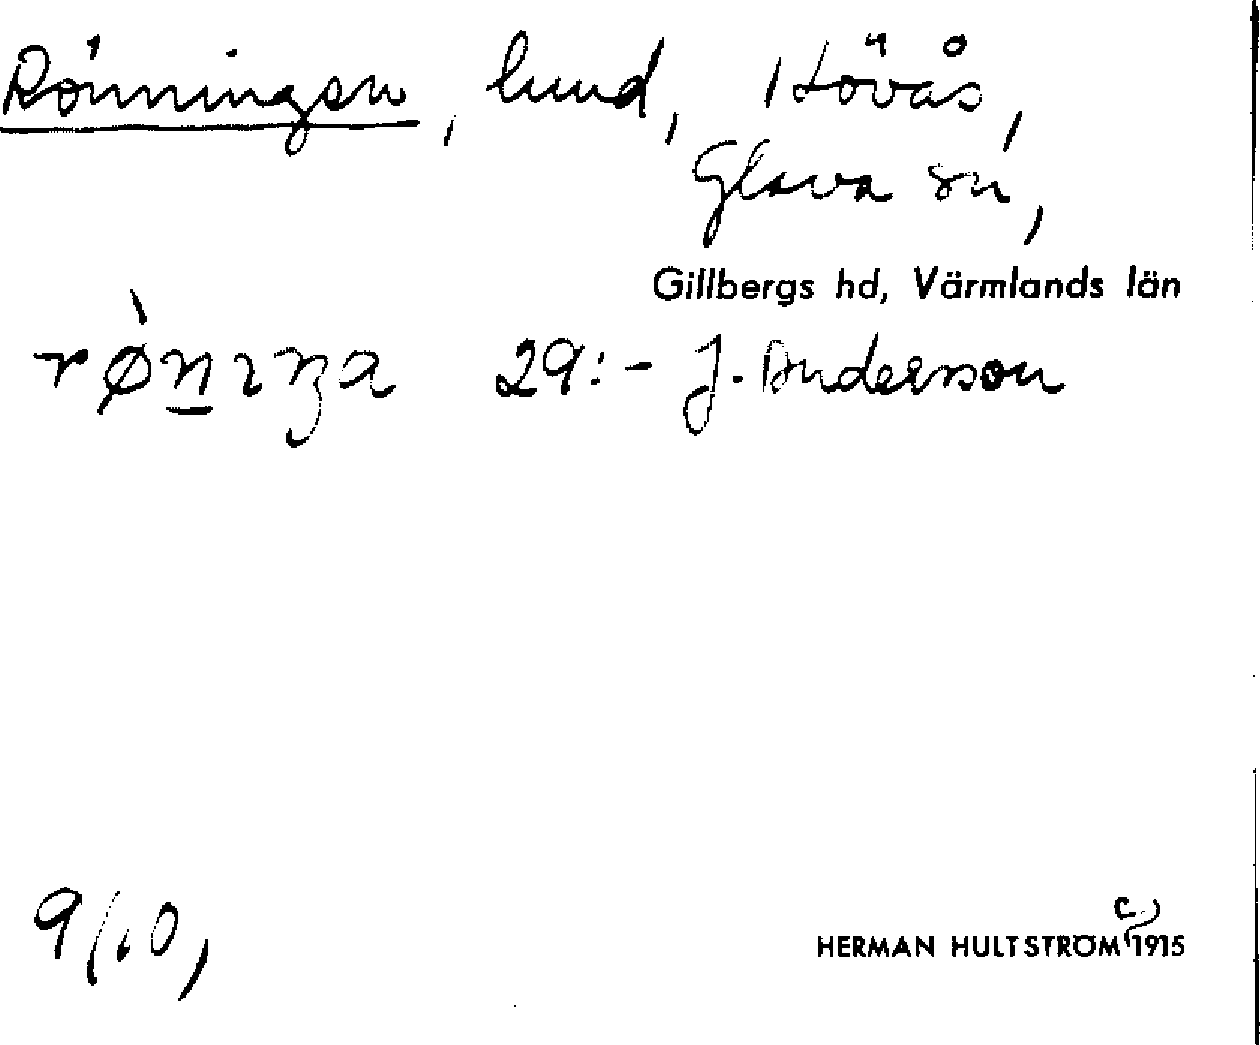 Rönningen, lund, Hövås,
Glava sn,
Gillbergs hd, Värmlands län
rǿnıŋa 29:- J. Anderson
HERMAN HULTSTRÖM 1915